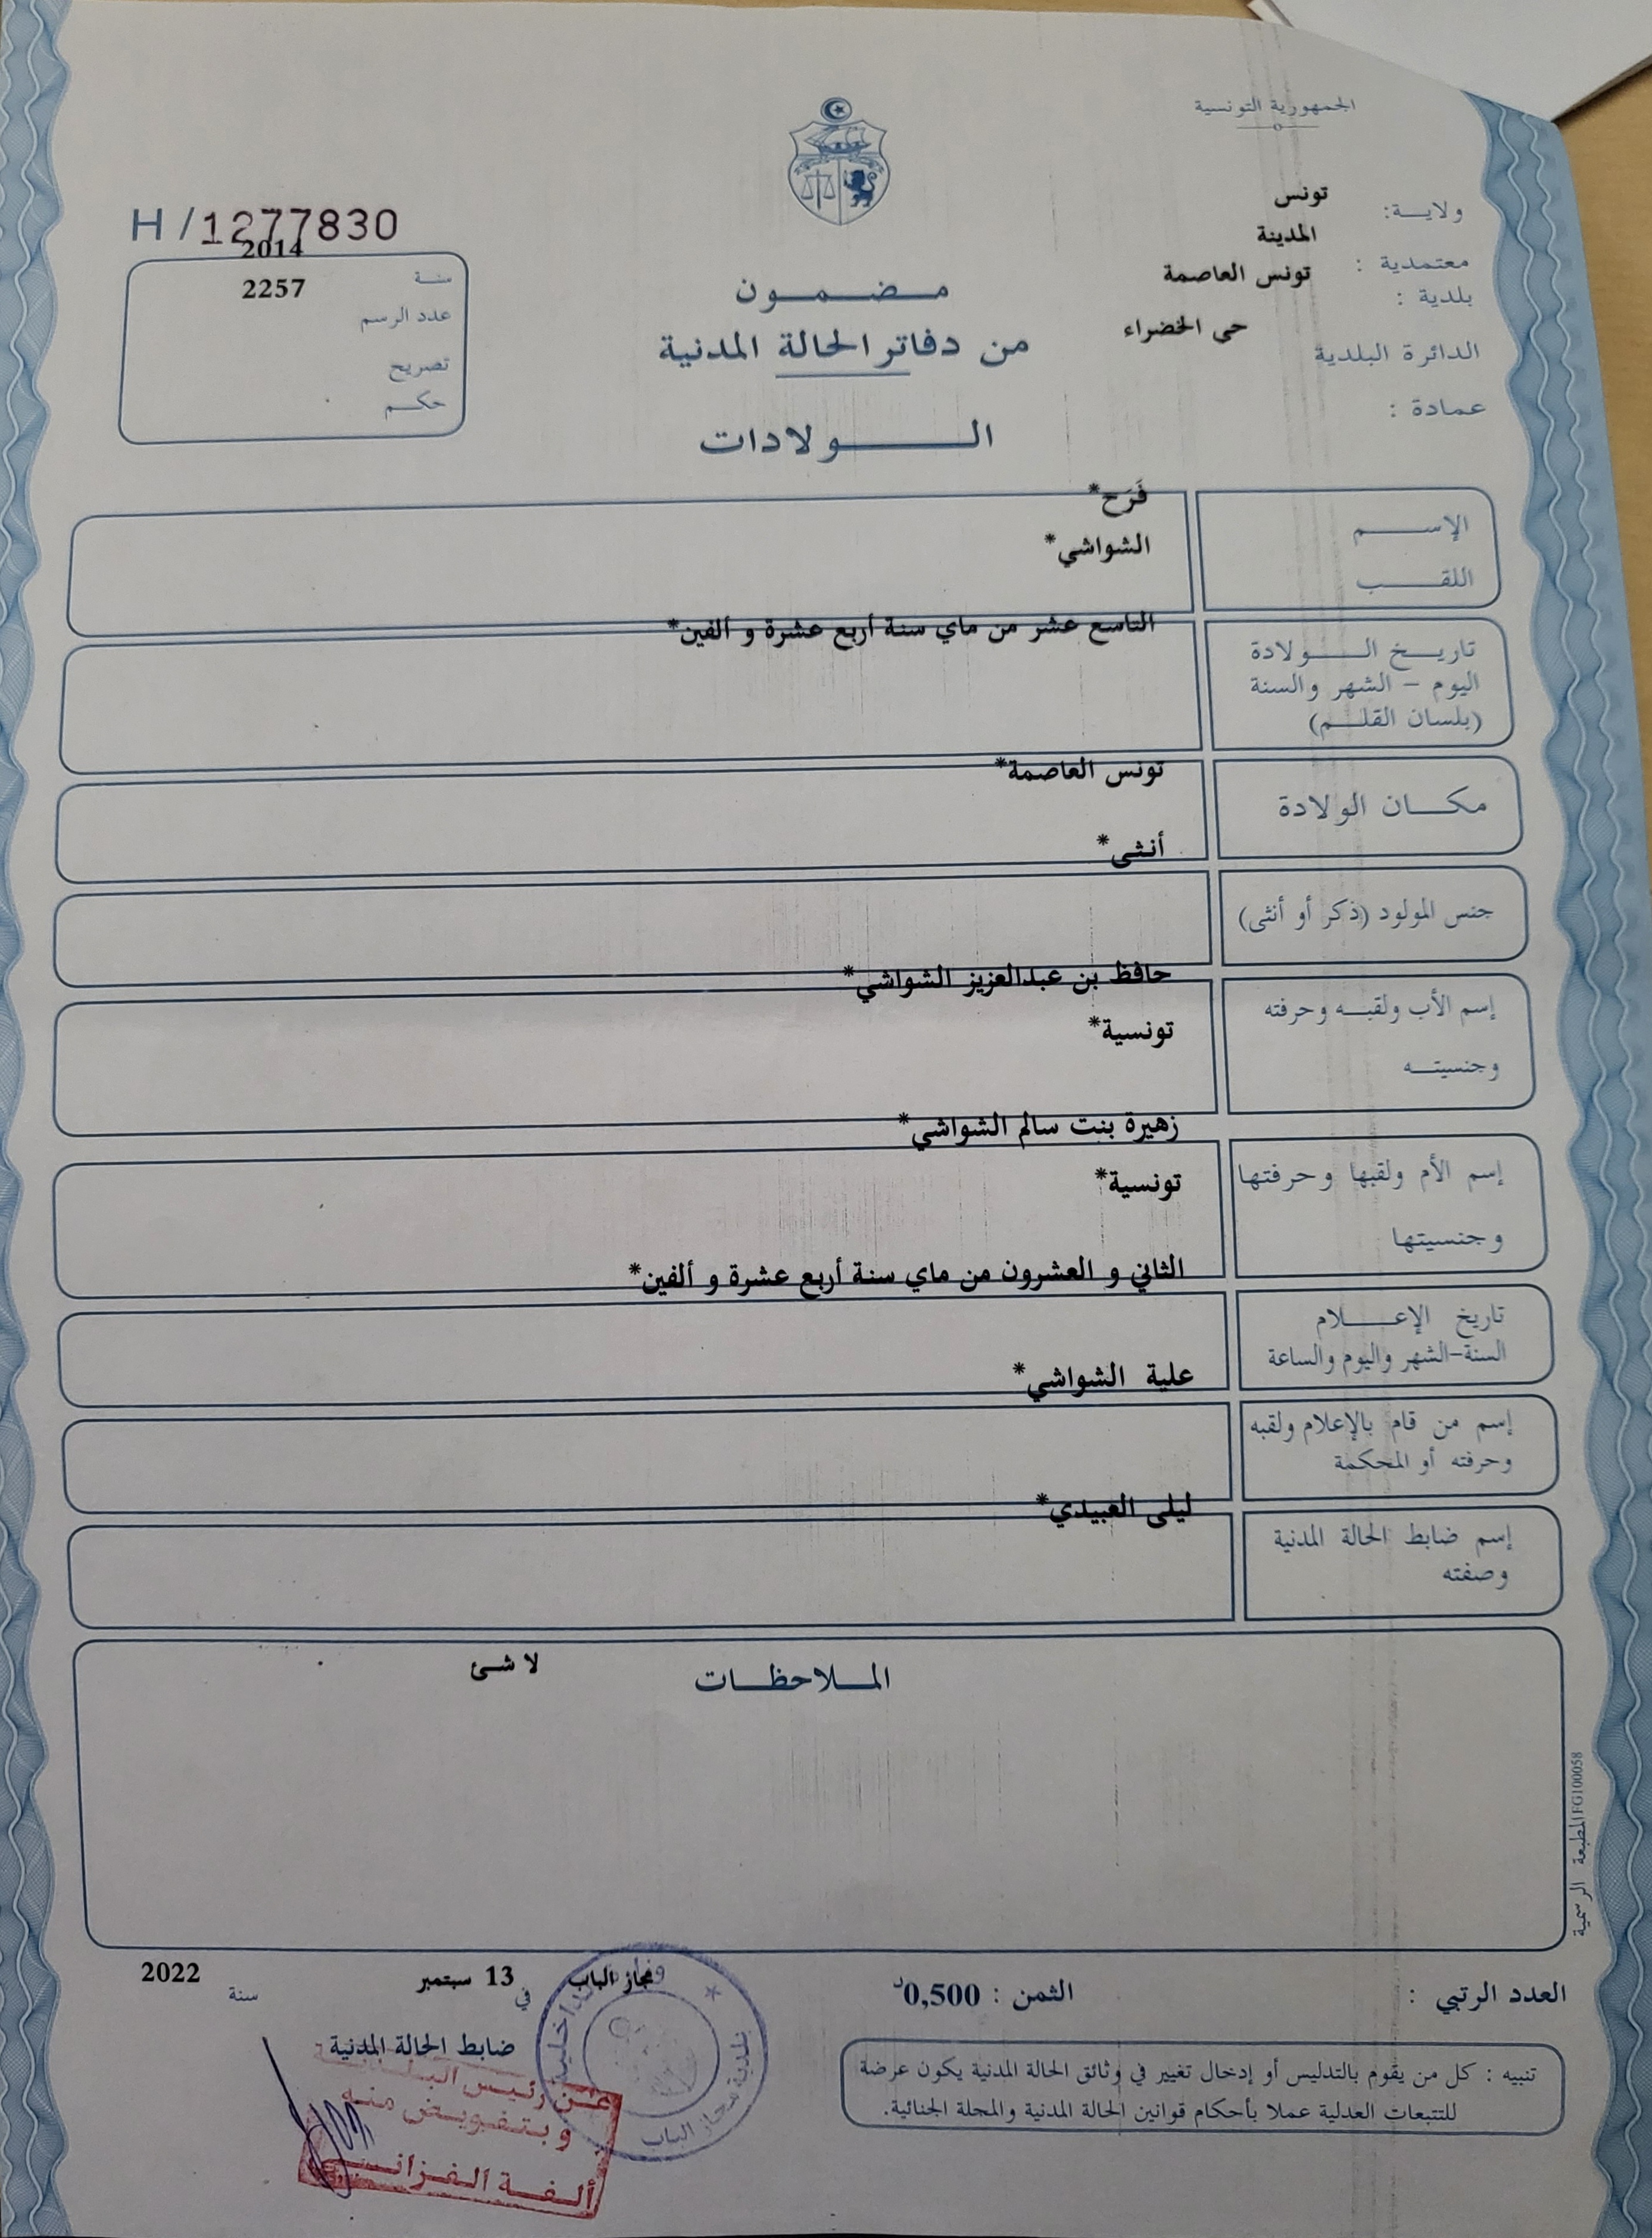 الجمهورية التونسية
ولاية: تونس
معتمدية : المدينة
بلدية : تونس العاصمة
الدائرة البلدية حى الخضراء
عمادة :
H/1277830
سنة 2014
عدد الرسم 2257
تصريح
حكم
مضمون
من دفاتر الحالة المدنية
الولادات
الإسم فَرَح*
اللقب الشواشي*
تاريخ الولادة التاسع عشر من ماي سنة أربع عشرة و ألفين*
اليوم - الشهر والسنة
(بلسان القلم)
مكان الولادة تونس العاصمة*
جنس المولود (ذكر أو أنثى) أنثى*
إسم الأب ولقبه وحرفته حافظ بن عبدالعزيز الشواشي*
وجنسيته تونسية*
إسم الأم ولقبها وحرفتها زهيرة بنت سالم الشواشي*
وجنسيتها تونسية*
تاريخ الإعلام الثاني و العشرون من ماي سنة أربع عشرة و ألفين*
السنة-الشهر واليوم والساعة
إسم من قام بالإعلام ولقبه علية الشواشي*
وحرفته أو المحكمة
إسم ضابط الحالة المدنية ليلى العبيدي*
وصفته
الملاحظات لا شئ
المطبعة الرسمية FG100058
العدد الرتبي :
الثمن : 0,500د
مجاز الباب في 13 سبتمبر سنة 2022
ضابط الحالة المدنية
عن رئيس البلدية
وبتفويض منه
ألفة الفزاني
وزارة الداخلية
بلدية مجاز الباب
تنبيه : كل من يقوم بالتدليس أو إدخال تغيير في وثائق الحالة المدنية يكون عرضة
للتتبعات العدلية عملا بأحكام قوانين الحالة المدنية والمجلة الجنائية.